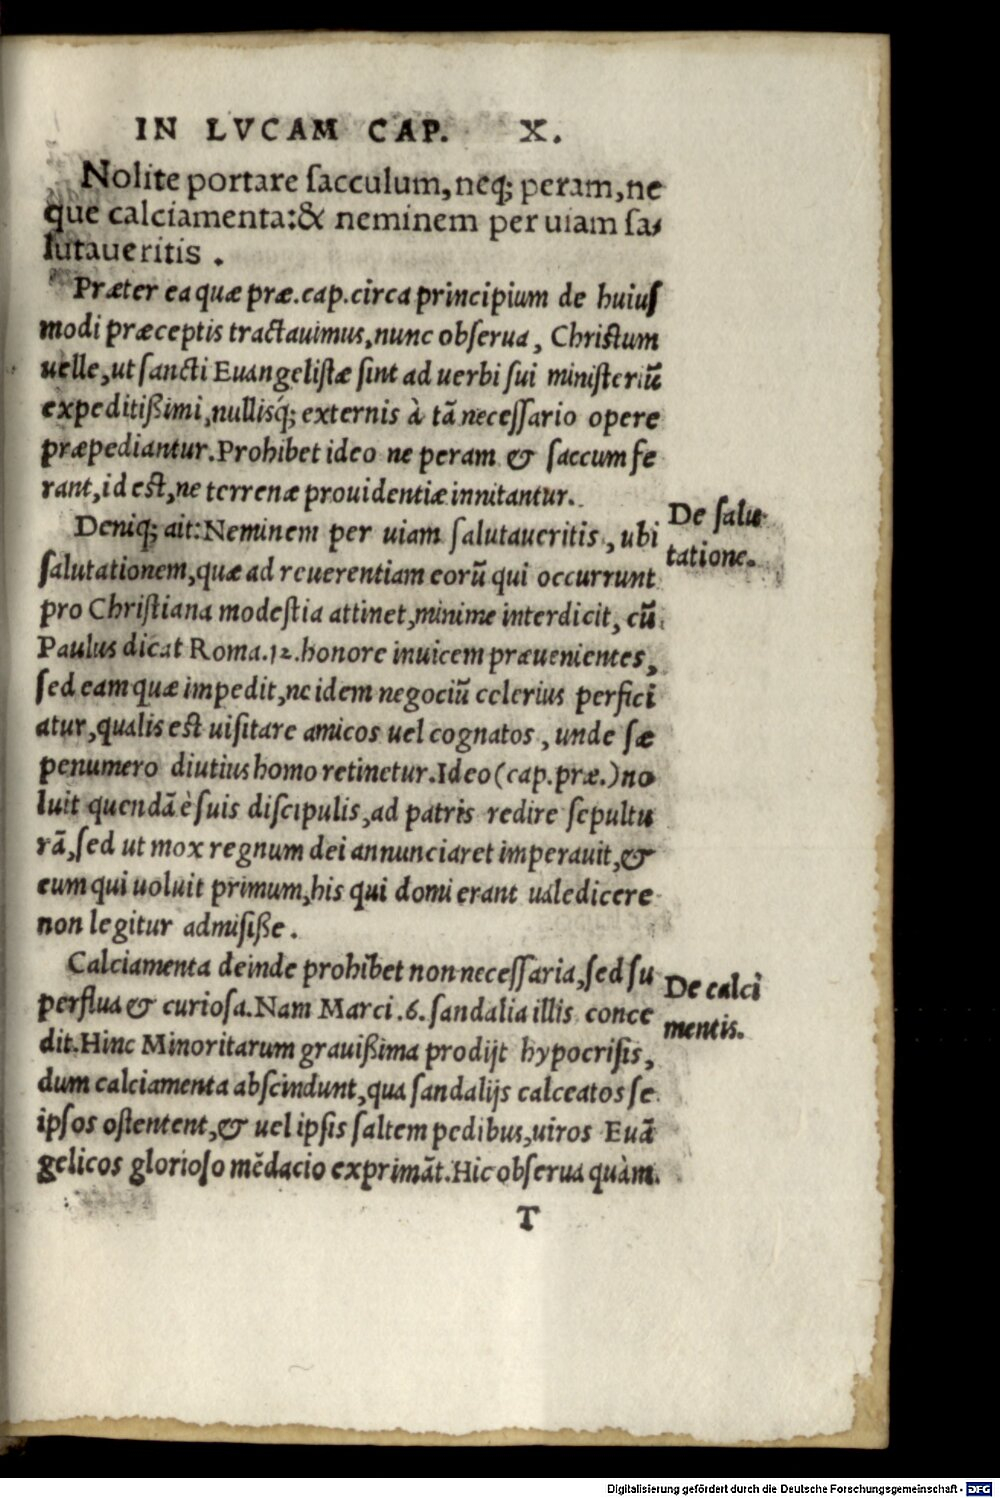 IN LVCAM CAP. X.
Nolite portare sacculum, neq; peram, ne
que calciamenta: & neminem per uiam sa-
lutaueritis.
Præter ea quæ præ. cap. circa principium de huius
modi præceptis tractauimus, nunc obserua, Christum
uelle, ut sancti Euangelistæ sint ad uerbi sui ministeriũ
expeditißimi, nullisq́; externis à tã necessario opere
præpediantur. Prohibet ideo ne peram & saccum fe
rant, id est, ne terrenæ prouidentiæ innitantur.
Deniq; ait: Neminem per uiam salutaueritis, ubi
De salu-
tatione.
salutationem, quæ ad reuerentiam eorũ qui occurrunt
pro Christiana modestia attinet, minime interdicit, cũ
Paulus dicat Roma. 12. honore inuicem præuenientes,
sed eam quæ impedit, ne idem negociũ celerius perfici
atur, qualis est uisitare amicos uel cognatos, unde sæ
penumero diutius homo retinetur. Ideo (cap. præ.) no
luit quendã è suis discipulis, ad patris redire sepultu
rã, sed ut mox regnum dei annunciaret imperauit, &
eum qui uoluit primum, his qui domi erant ualedicere
non legitur admisiße.
Calciamenta deinde prohibet non necessaria, sed su
De calci
mentis.
perflua & curiosa. Nam Marci. 6. sandalia illis conce
dit. Hinc Minoritarum grauißima prodijt hypocrisis,
dum calciamenta abscindunt, qua sandalijs calceatos se
ipsos ostentent, & uel ipsis saltem pedibus, uiros Euã
gelicos glorioso mẽdacio exprimãt. Hic obserua quàm
T
Digitalisierung gefördert durch die Deutsche Forschungsgemeinschaft - DFG